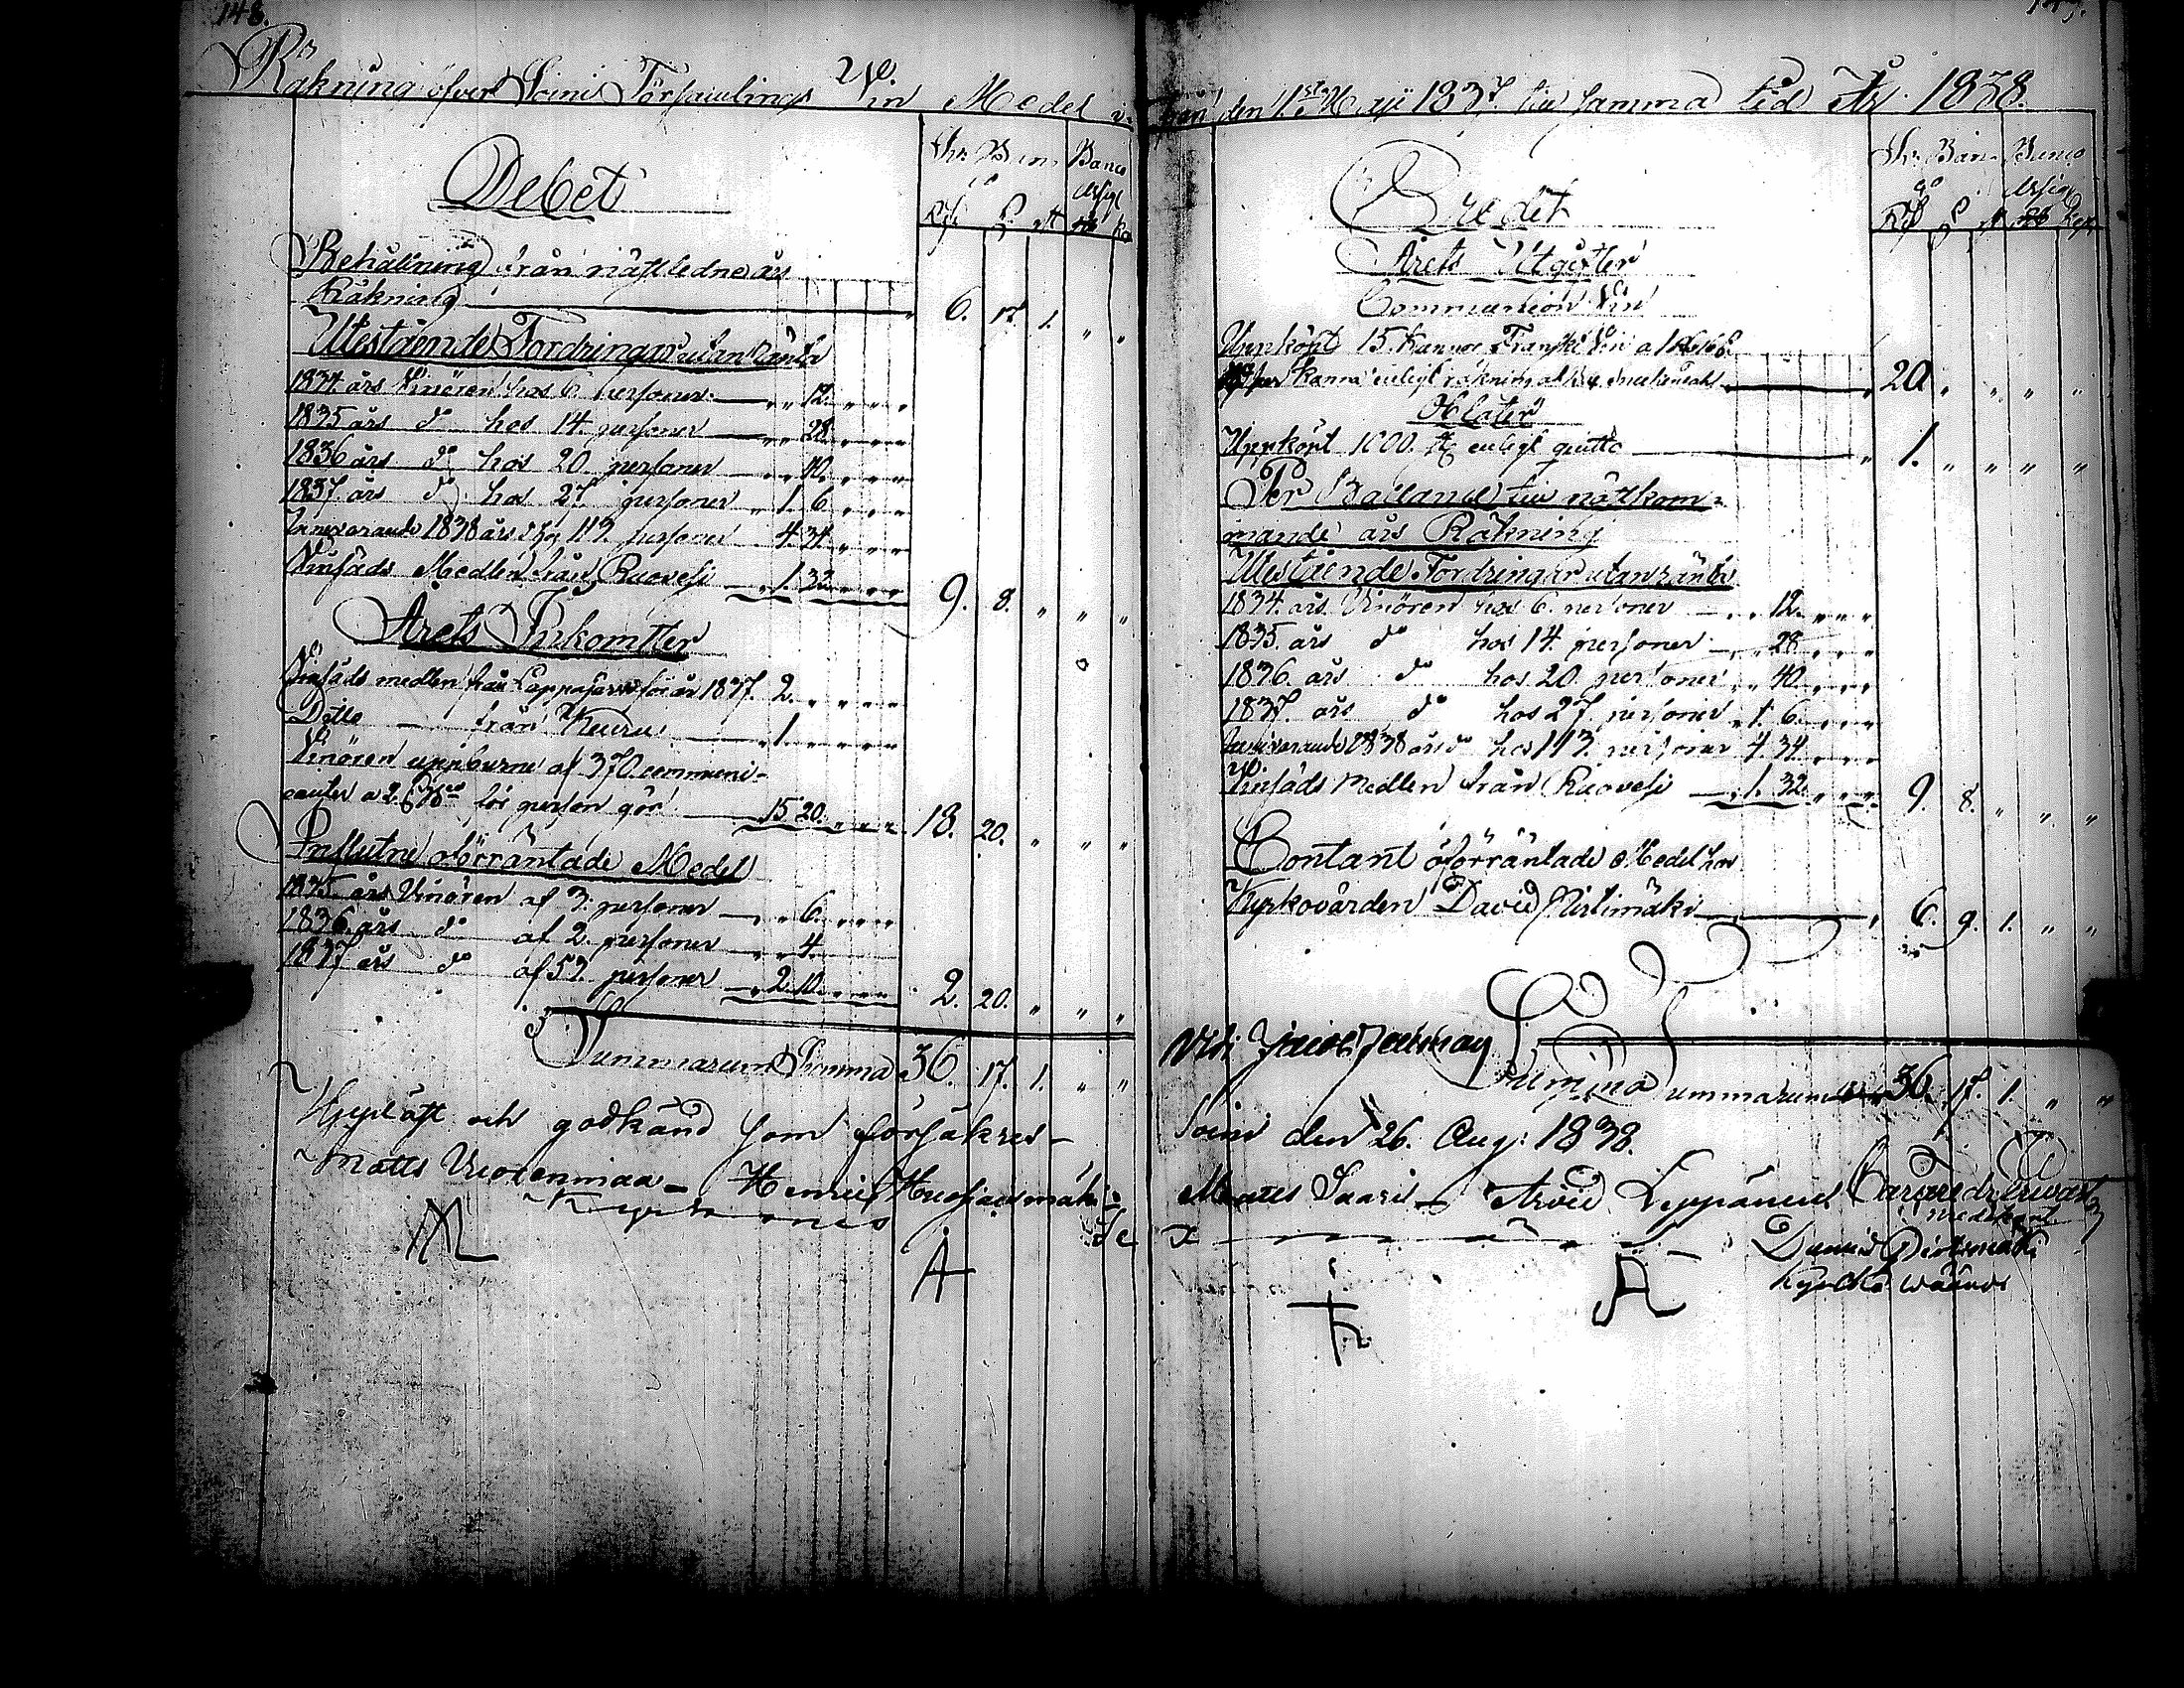 148.
Räkning öfver Soini Församlings Vin Medel
Debet
Banco
Behållning från nästledne års
Räkning 6. 17. 1. " "
Utestående Fordringar utan ränta
1834 års Vinören hos 6 personer 12.
1835 års do hos 14. personer 28.
1836 års do hos 20. personer 40.
1837. års do hos 27. personer 1. 6.
innevarande 1838 års do hos 113. personer 4 34
Vinsäds Medlen från Ruovesi 1. 32 9. 8. " " "
Årets Inkomster
Vinsäds medlen från Lappajärvi för år 1837. 2.
Ditto från Keuru 1.
Vinören uppburne af 370 communi-
canter a 2 för person gör 15 20. 18. 20. " " "
Influtne oförräntade Medel
1835 års Vinören af 3. personer 6.
1836. års do af 2. personer 4.
1837 års do af 53. personer 2. 10. 2. 20. " " "
Summarum Summa 36. 17. 1. " "
Uppläst och godkänd som försäkres
Matts Vuorenmaa - Henric
från den 1sta Maji 1837 till samma tid År 1838.
Credit
Banco
Årets Utgifter
Communion Vin
Uppköpt 15. Kannor Franskt Vin a
per Kanna enligt räkning 20. " " " "
Oblater
Uppköpt 1000. st enligt quitto 1. " " " "
Per Balance till nästkom-
mande års Räkning
Utestående Fordringar utan ränta
1834. års Vinören hos 6. personer 12.
1835. års do hos 14 personer 28
1836. års do hos 20 personer 40.
1837. års do hos 27. personer 1. 6.
innevarande 1838 års do hos 113. personer 4. 34.
Vinsäds Medlen från Ruovesi 1. 32. 9. 8. " " "
Contant oförräntade Medel hos
Kyrkovärden David Pirtimäki 6. 9. 1. " "
Summa Summarum 36. 17. 1. " "
Soini den 26. Aug: 1838.
Matts Saari - Arvid Leppänen
David Pirtimäki